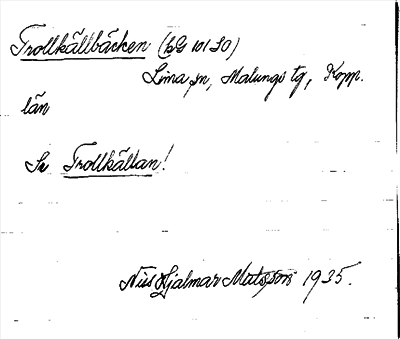 Trollkällbäcken (bG 101 SO)
Lima sn, Malungs tg, Kopp.
län
Se Trollkällan!
Nils Hjalmar Matsson 1935.